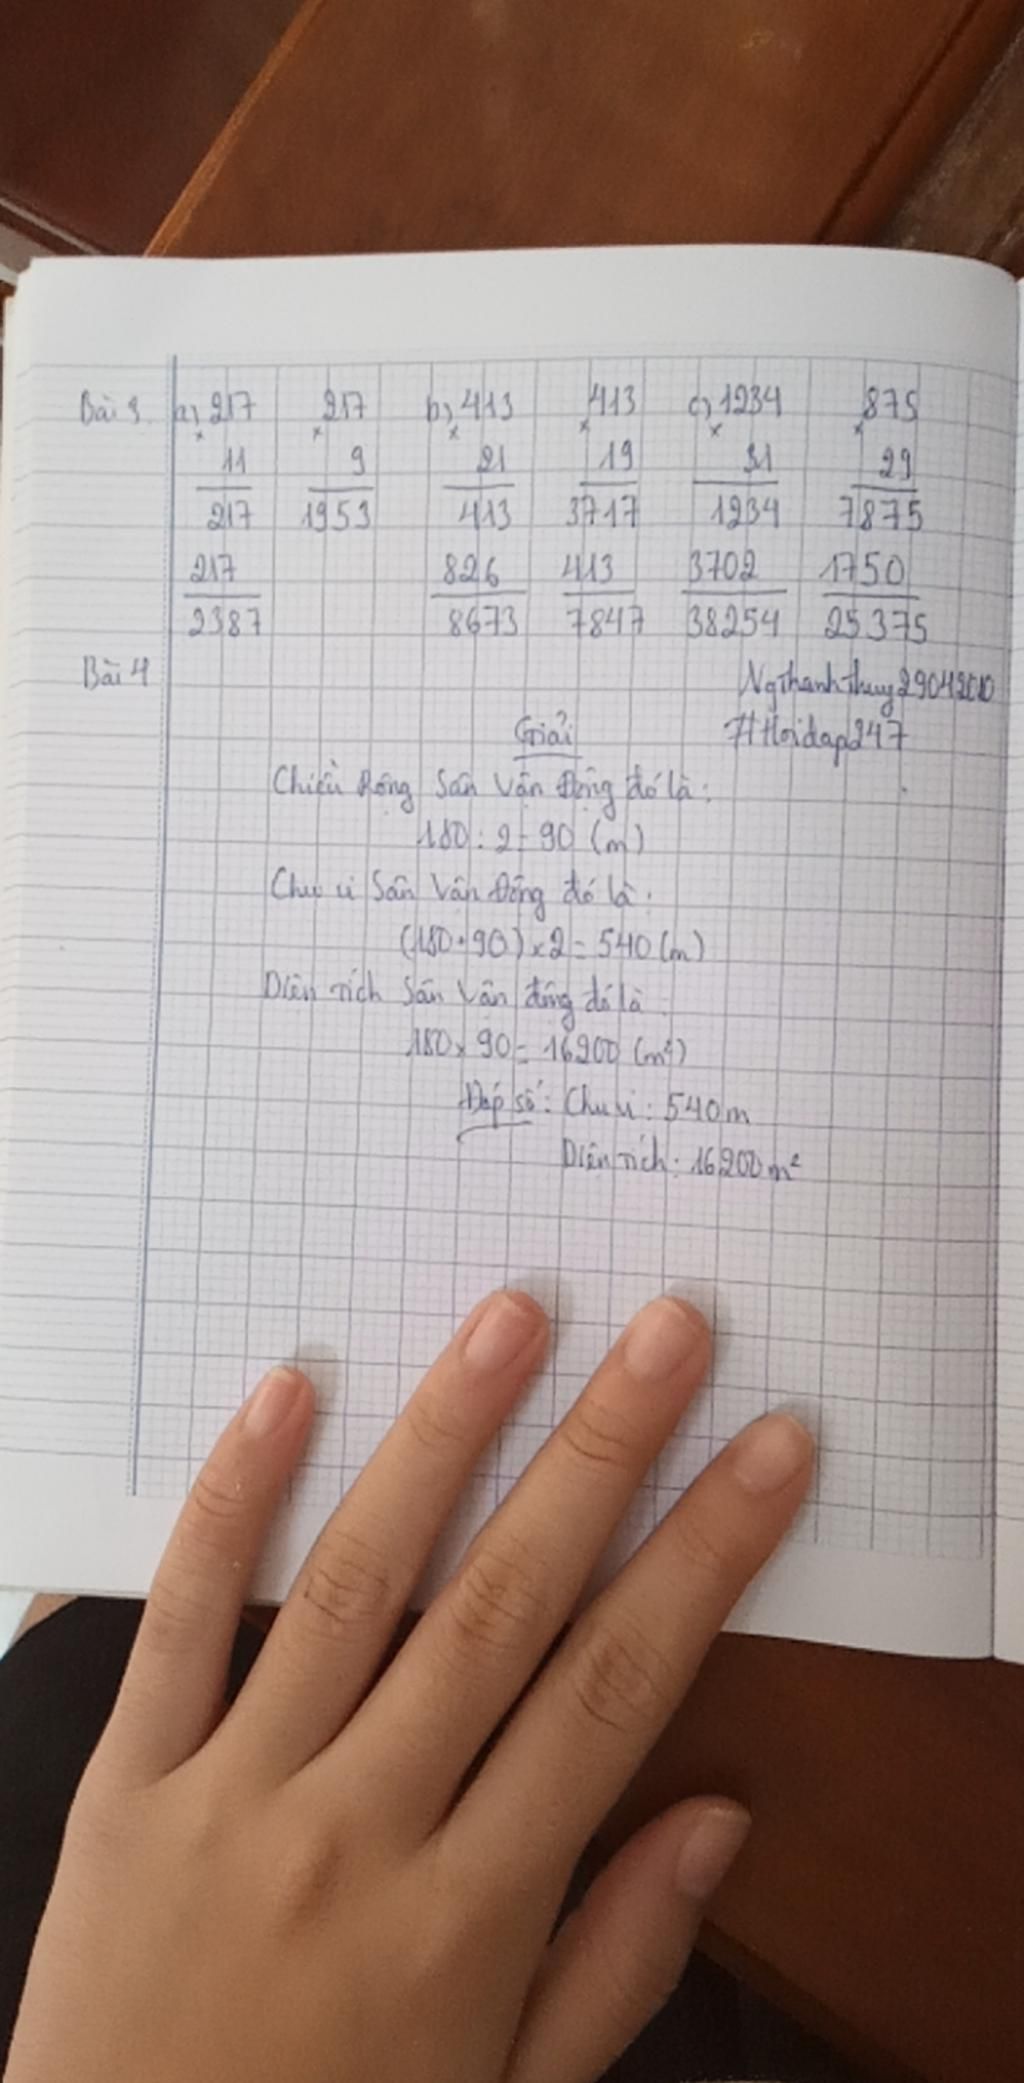 Bài 3. a) 217 217 b) 413 413 c) 1234 875
× × × × × ×
11 9 21 19 31 29
217 1953 413 3717 1234 7875
217 826 413 3702 1750
2387 8673 7847 38254 25375
Bài 4 Ngthanhthuy29042010
Giải #Hoidap247
Chiều Rộng Sân Vận Động đó là:
180 : 2 = 90 (m)
Chu vi Sân Vận Động đó là:
(180 + 90) × 2 = 540 (m)
Diện tích Sân Vận động đó là:
180 × 90 = 16200 (m²)
Đáp số: Chu vi: 540m
Diện tích: 16200m²